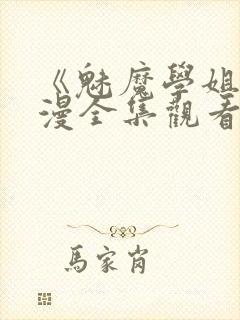 《魅魔學姐
漫全集觀看
馬家肖